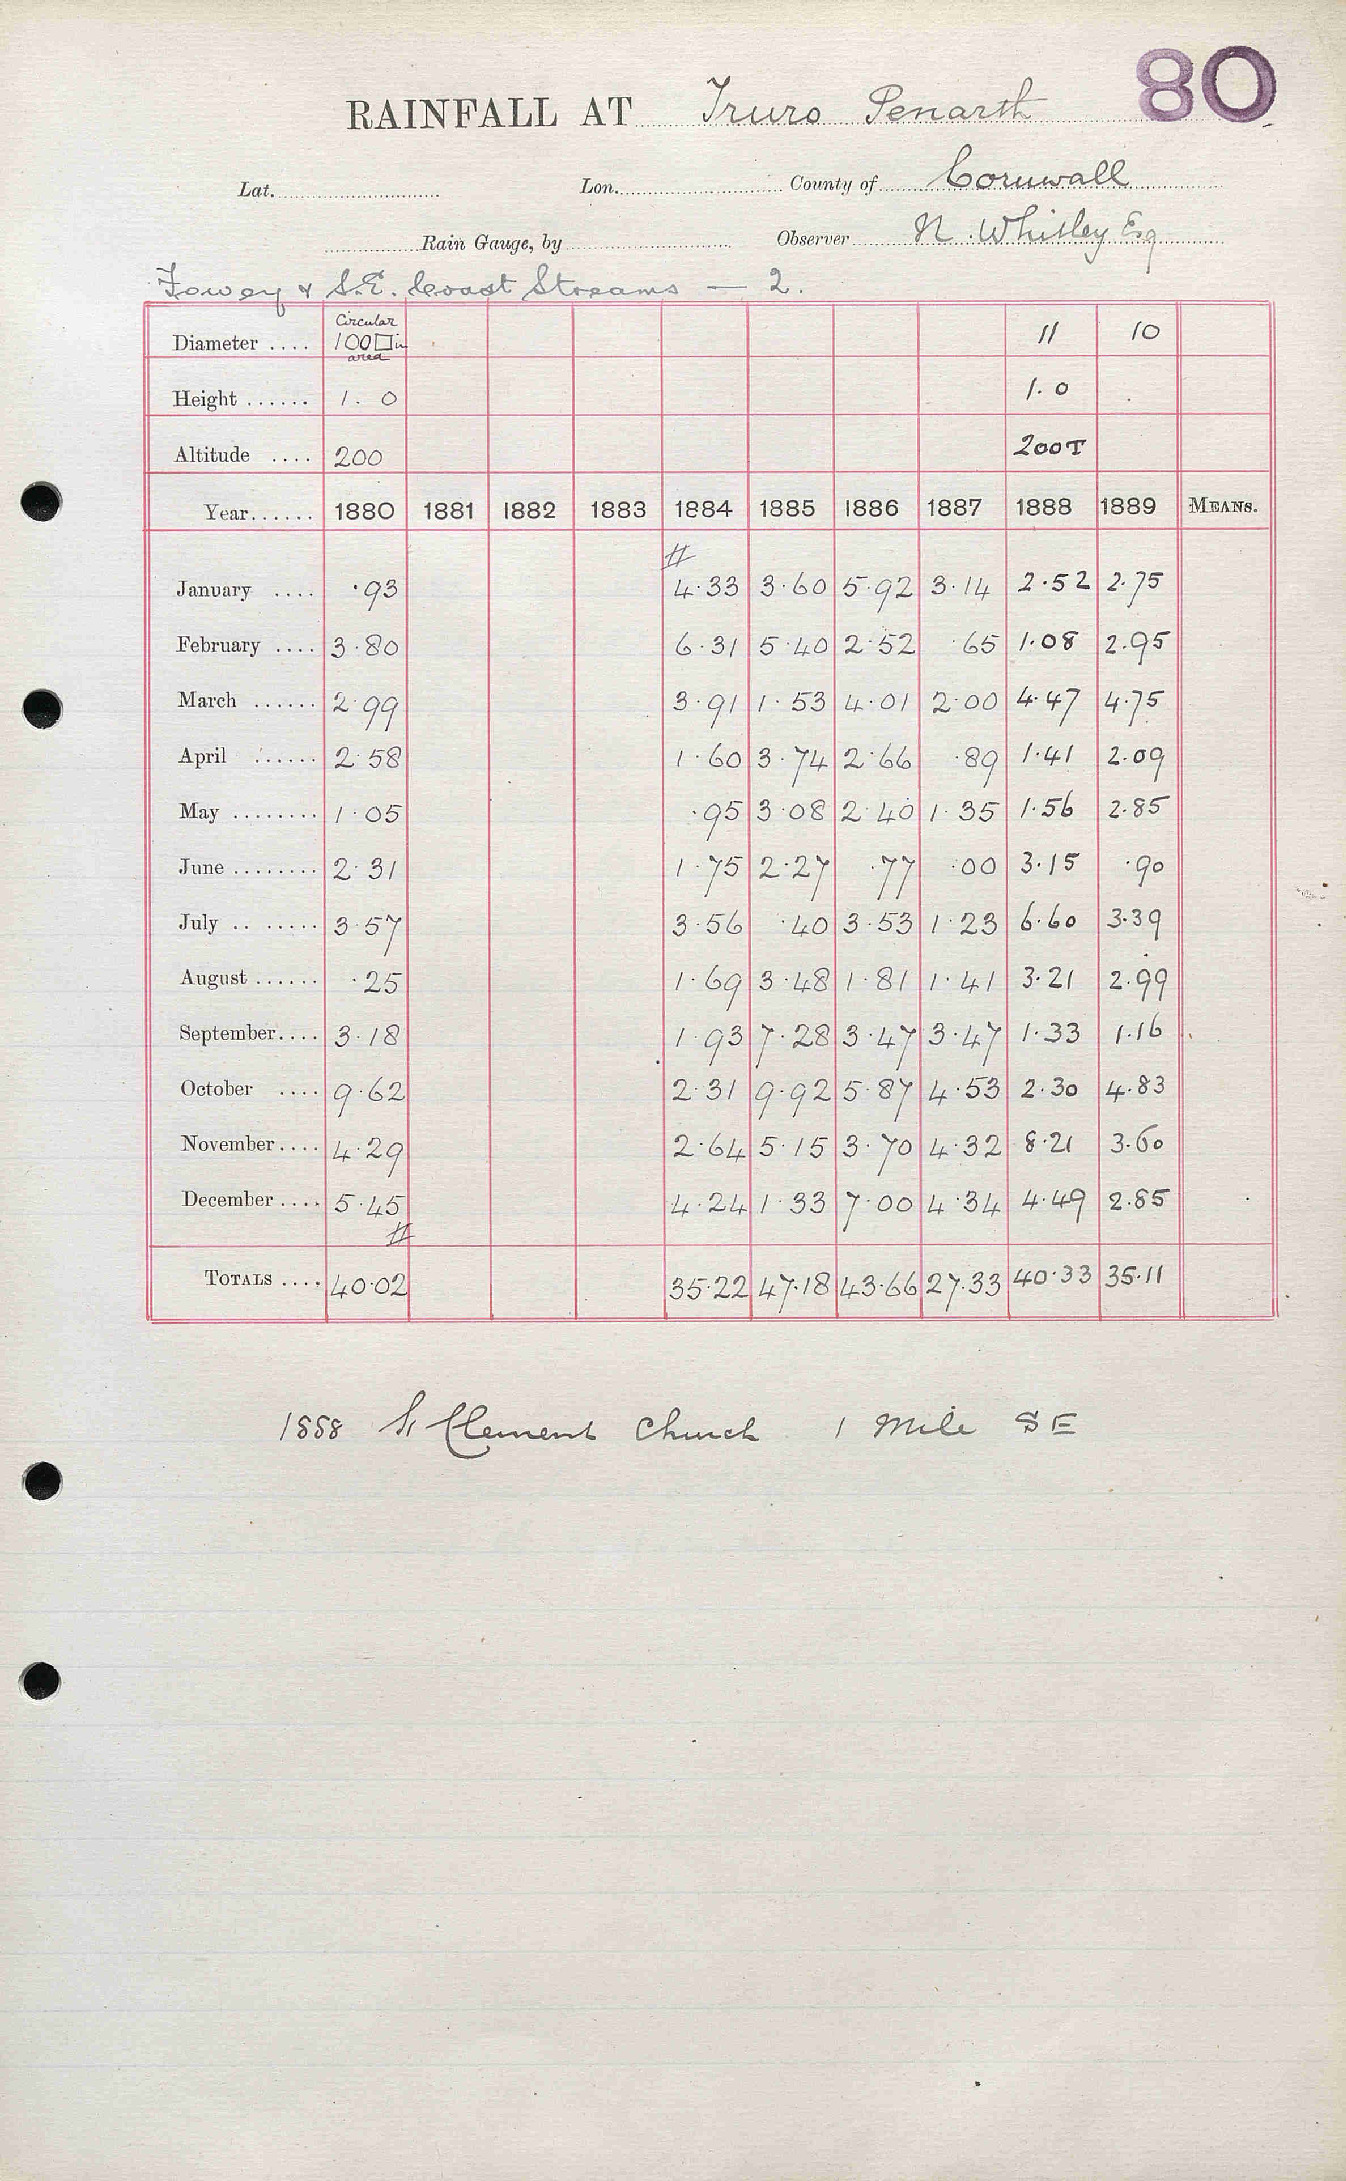 80
RAINFALL AT Truro Penarth
Lat. Lon. County of Cornwall
Rain Gauge, by Observer N. Whitley Esq
Fowey & S.E. Coast Streams — 2.
Diameter .... Circular 100□in area 11 10
Height ...... 1. 0 1. 0
Altitude .... 200 200T
Year...... 1880 1881 1882 1883 1884 1885 1886 1887 1888 1889 MEANS.
#
January .... ·93 4·33 3·60 5·92 3·14 2·52 2·75
February .... 3·80 6·31 5·40 2·52 ·65 1·08 2·95
March ...... 2·99 3·91 1·53 4·01 2·00 4·47 4·75
April ...... 2·58 1·60 3·74 2·66 ·89 1·41 2·09
May ........ 1·05 ·95 3·08 2·40 1·35 1·56 2·85
June ........ 2·31 1·75 2·27 ·77 ·00 3·15 ·90
July .. ...... 3·57 3·56 ·40 3·53 1·23 6·60 3·39
August ...... ·25 1·69 3·48 1·81 1·41 3·21 2·99
September.... 3·18 1·93 7·28 3·47 3·47 1·33 1·16
October .... 9·62 2·31 9·92 5·87 4·53 2·30 4·83
November.... 4·29 2·64 5·15 3·70 4·32 8·21 3·60
December .... 5·45 4·24 1·33 7·00 4·34 4·49 2·85
#
TOTALS .... 40·02 35·22 47·18 43·66 27·33 40·33 35·11
1888 St Clement Church 1 Mile SE